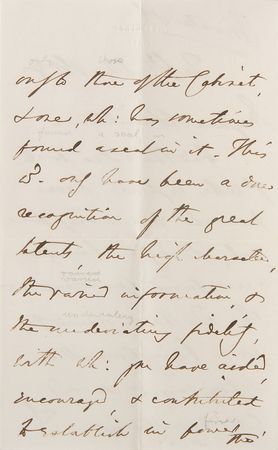 those
only to those of the Cabinet,
& one, wh: has sometimes
found a seat in
found a seat in it. This
wd. only have been a due
recognition of the great
talents, the high character,
varied
the varied information, &
undeviating
the undeviating fidelity,
with wh: you have aided,
encouraged, & contributed
to establish in power, the